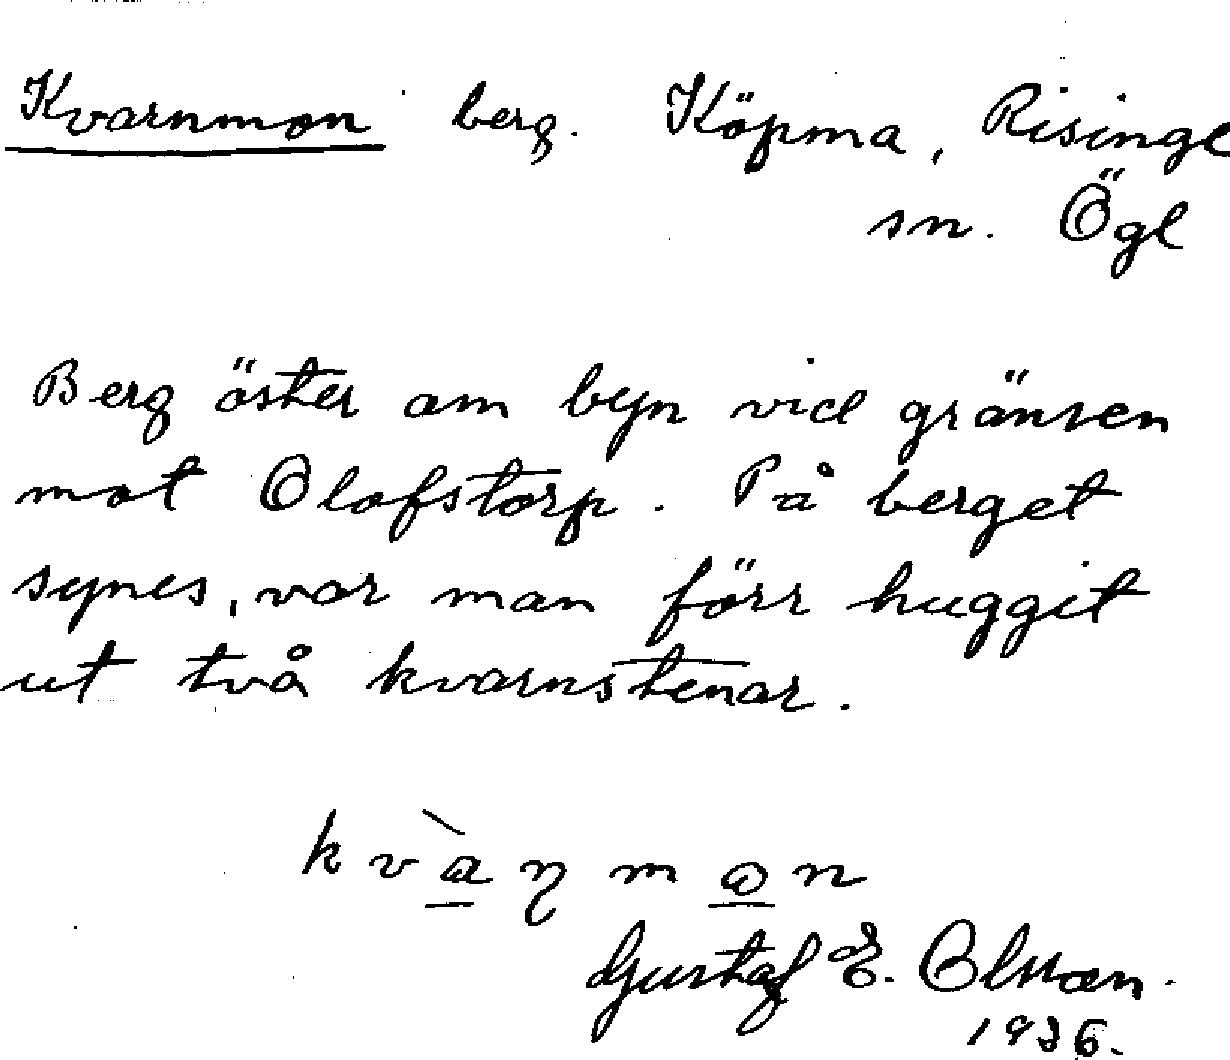 Kvarnmon berg. Köpma, Risinge
sn. Ögl
Berg öster om byn vid gränsen
mot Olofstorp. På berget
synes, var man förr huggit
ut två kvarnstenar.
kvàɳmon
Gustaf E. Olsson.
1936.